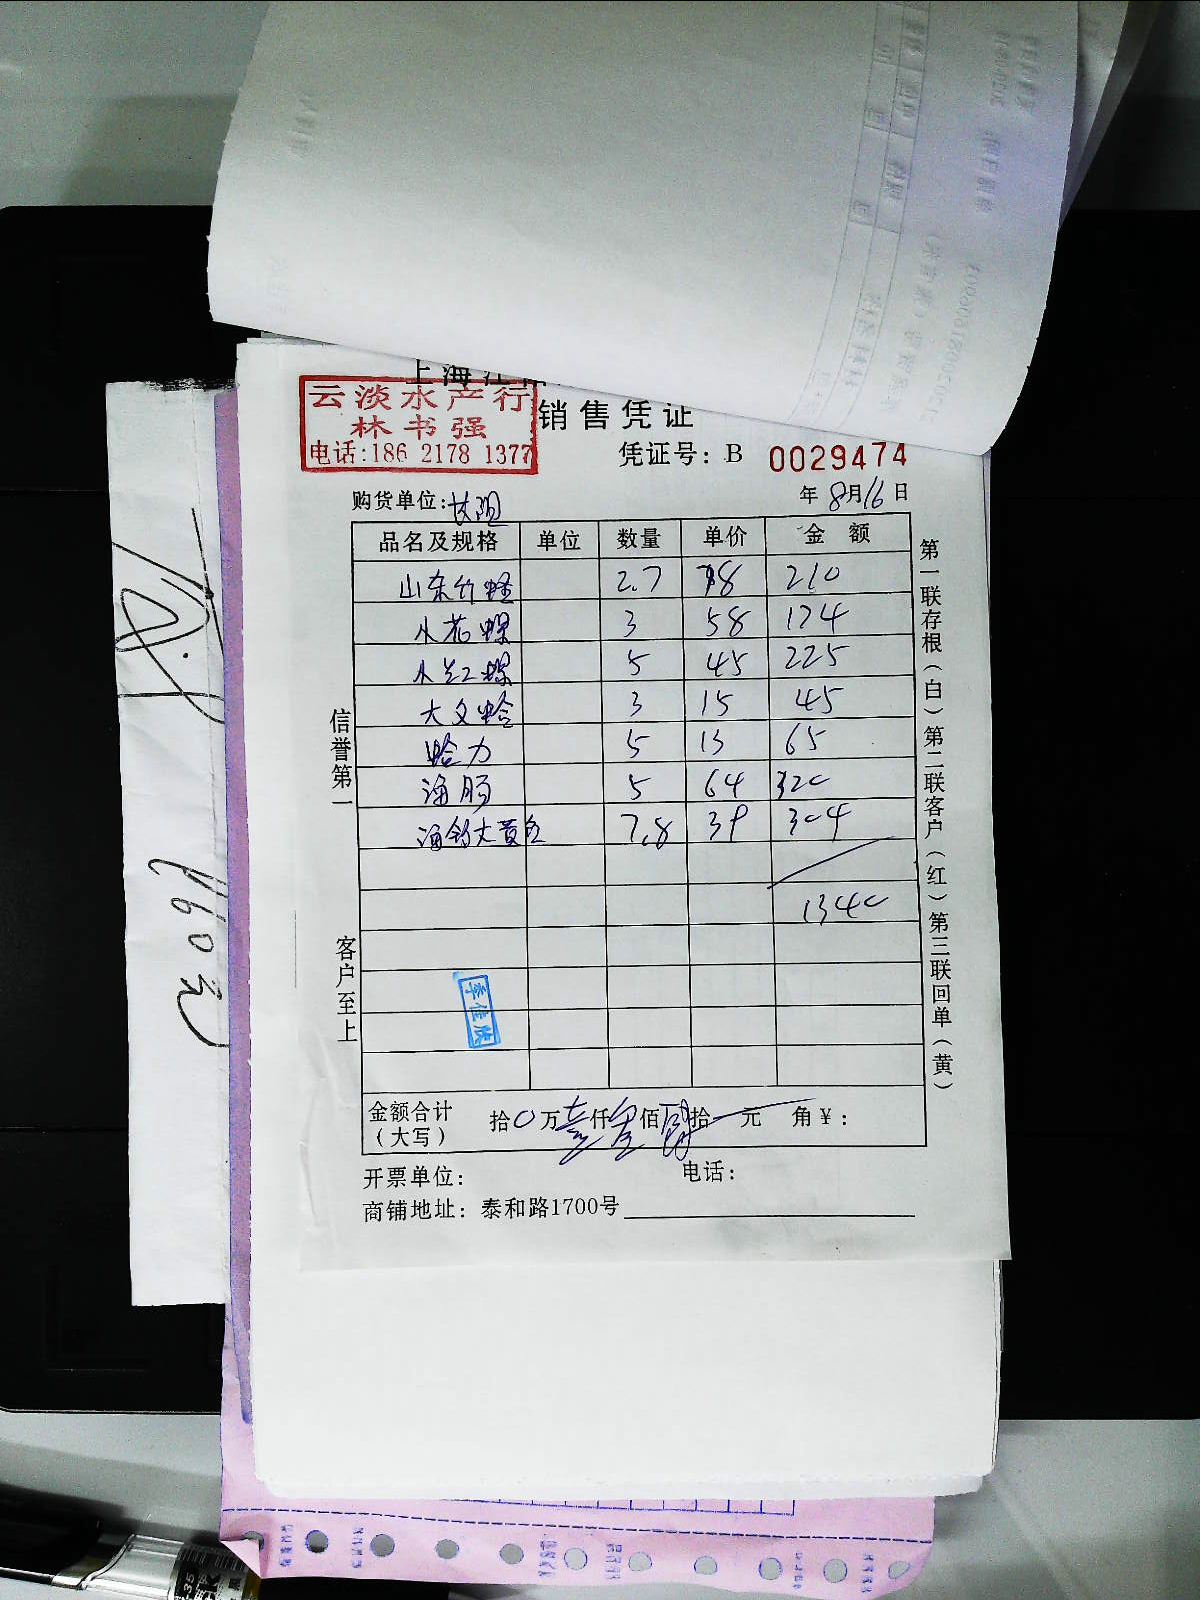 云淡水产行
林书强
电话:186 2178 1377
销售凭证
凭证号: B 0029474
购货单位:长阳
年 8月16日
品名及规格 单位 数量 单价 金 额
山东竹蛏 2.7 78 210
小花螺 3 58 174
小红螺 5 45 225
大文蛤 3 15 45
蛤力 5 13 65
海肠 5 64 320
海钓大黄鱼 7.8 39 304
1340
金额合计
(大写)
拾0万壹仟叁佰肆拾 元 角¥:
开票单位: 电话:
商铺地址: 泰和路1700号
信誉第一
客户至上
第一联存根(白)第二联客户(红)第三联回单(黄)
季佳欣
V60元